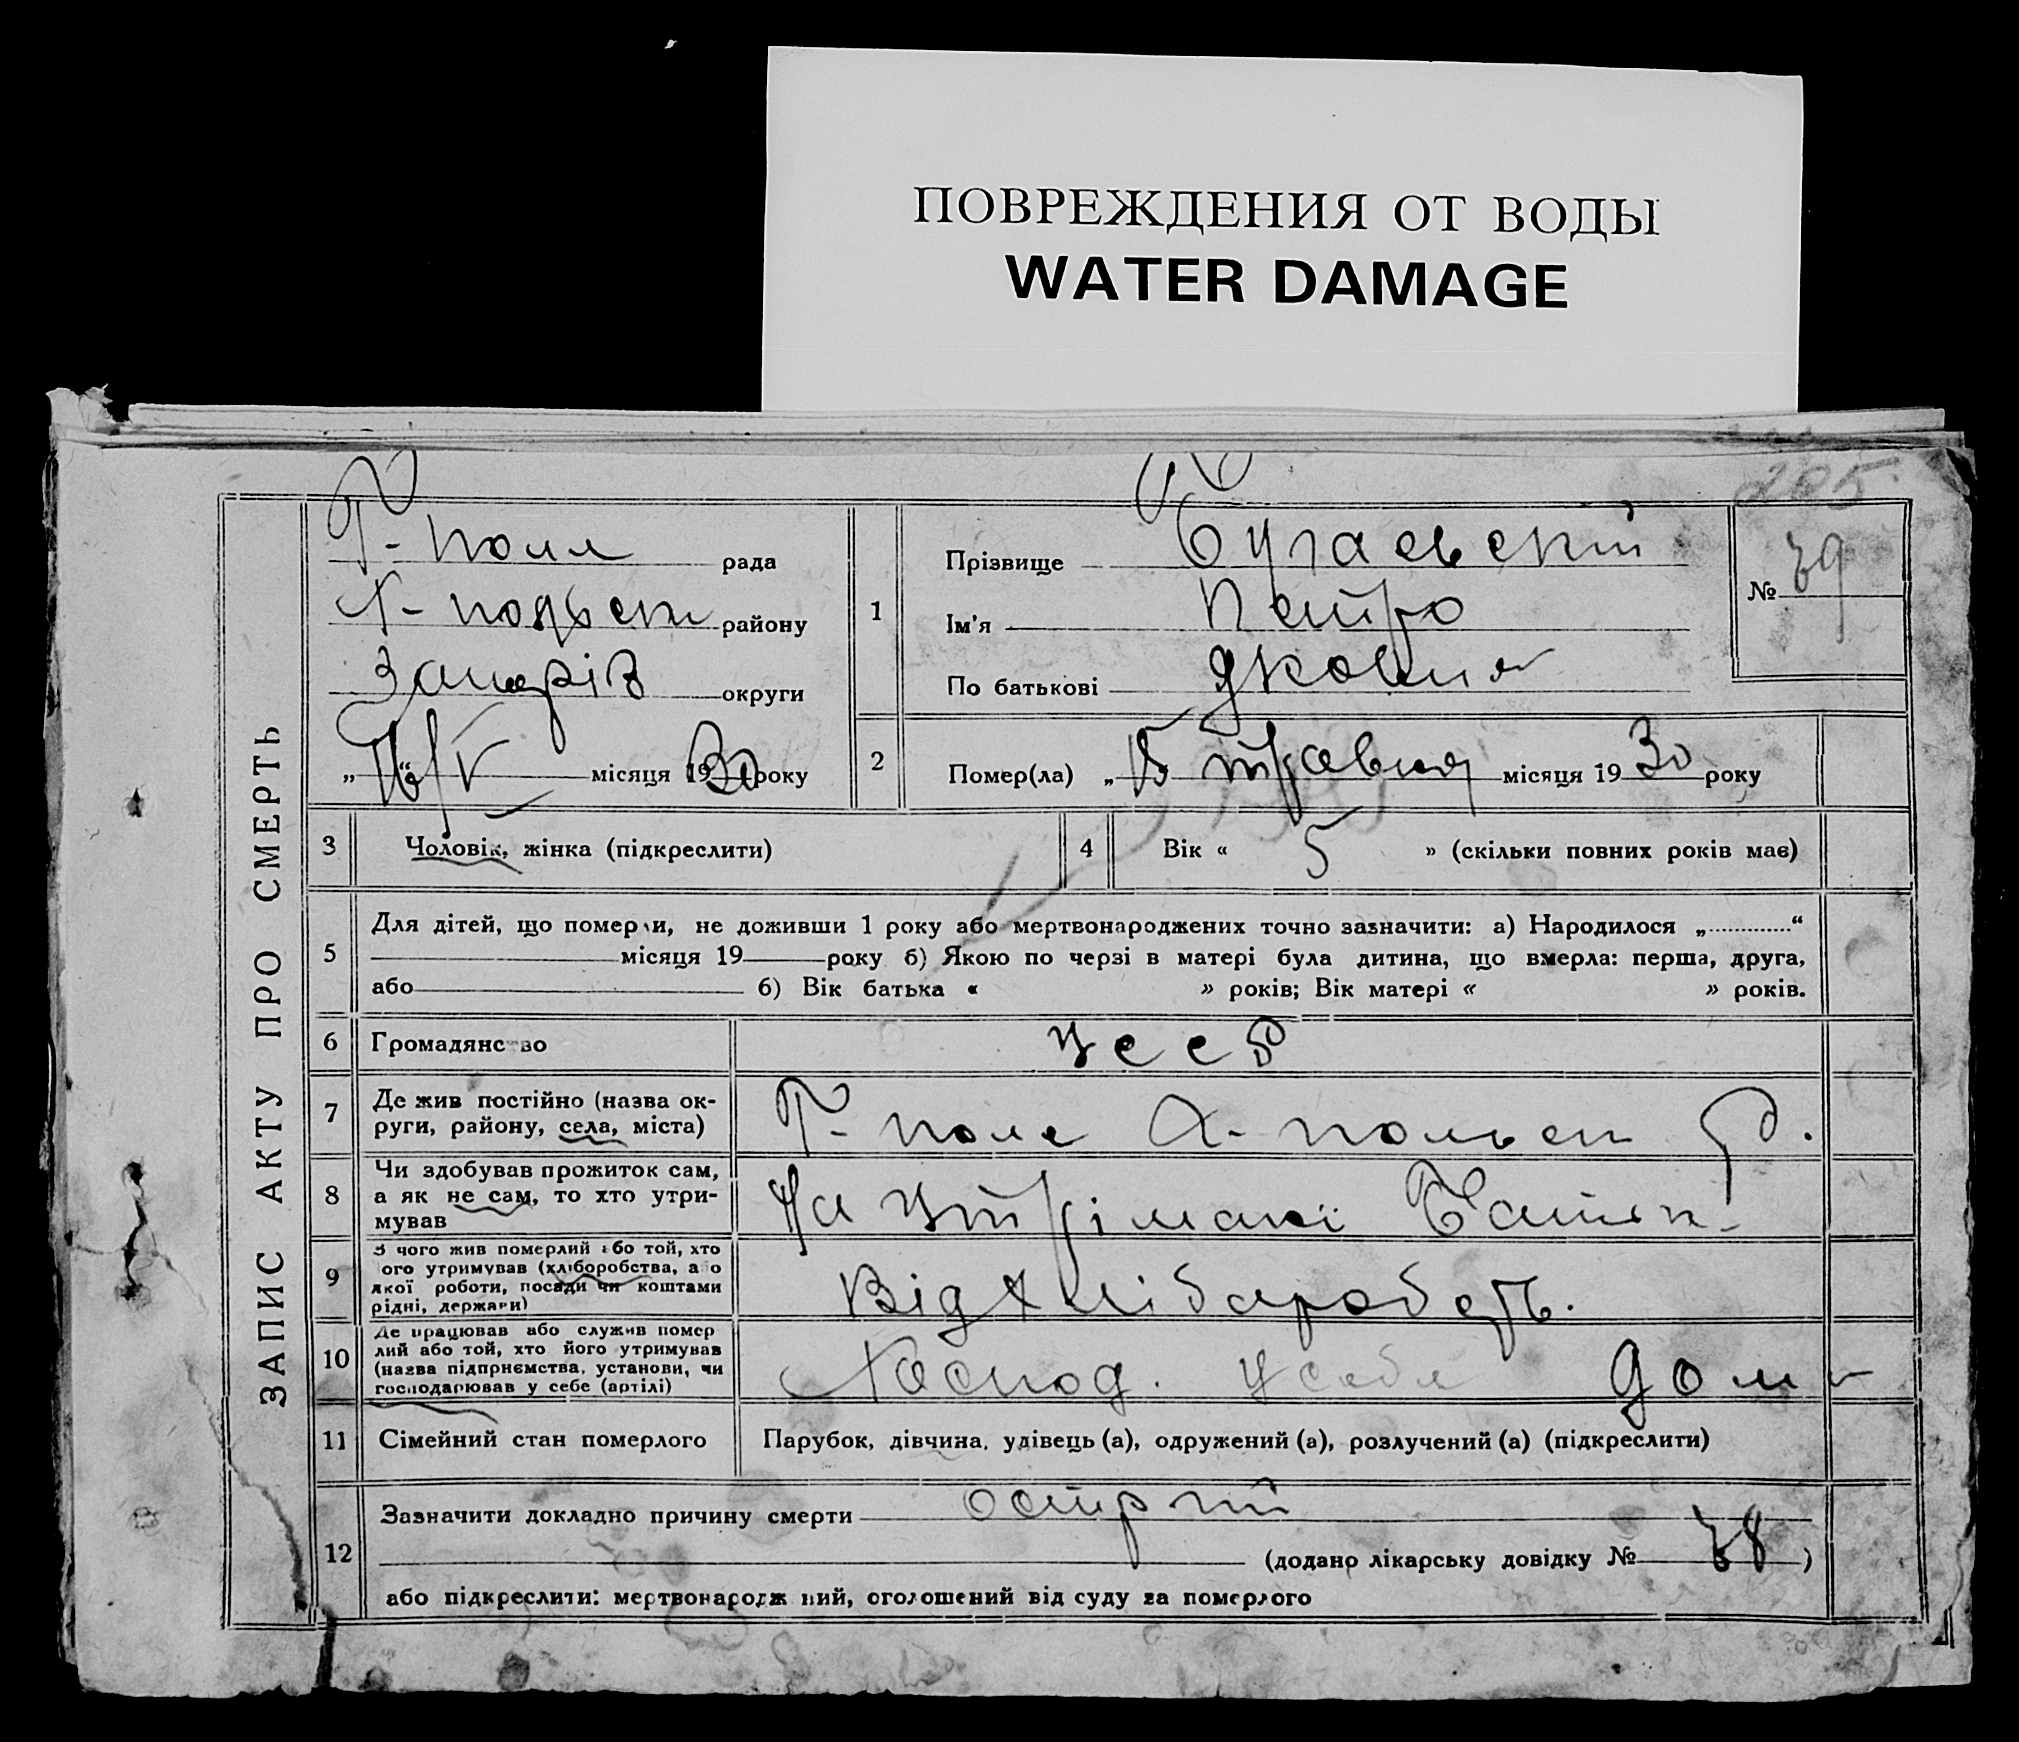 ПОВРЕЖДЕНИЯ ОТ ВОДЫ
WATER DAMAGE
205
ЗАПИС АКТУ ПРО СМЕРТЬ
Г-поля рада
района
округи
„16/V“ місяця 1930 року
1
Прізвище Бугаевский
Ім’я Петро
По батькові
№ 79
2
Помер(ла) „15 травня місяця 1930 року
3
Чоловік, жінка (підкреслити)
4
Вік « 5 » (скільки повних років має)
5
Для дітей, що померли, не доживши 1 року або мертвонароджених точно зазначити: а) Народилося „ “
місяця 19 року б) Якою по черзі в матері була дитина, що вмерла: перша, друга,
або б) Вік батька « » років; Вік матері « » років.
6
Громадянство
УССР
7
Де жив постійно (назва ок-
руги, району, села, міста)
Г-поле Х-польск р.
8
Чи здобував прожиток сам,
а як не сам, то хто утри-
мував
На утрімані Батьк-
9
З чого жив померлий або той, хто
його утримував (хліборобства, або
якої роботи, посади чи коштами
рідні, держави)
Від хліборобст.
10
Де працював або служив помер
лий або той, хто його утримував
(назва підприємства, установи, чи
господарював у себе (артілі)
Господ. у себе дома
11
Сімейний стан померлого
Парубок, дівчина, удівець (а), одружений (а), розлучений (а) (підкреслити)
12
Зазначити докладно причину смерти
(додано лікарську довідку № 78)
або підкреслити: мертвонароджений, оголошений від суду за померлого